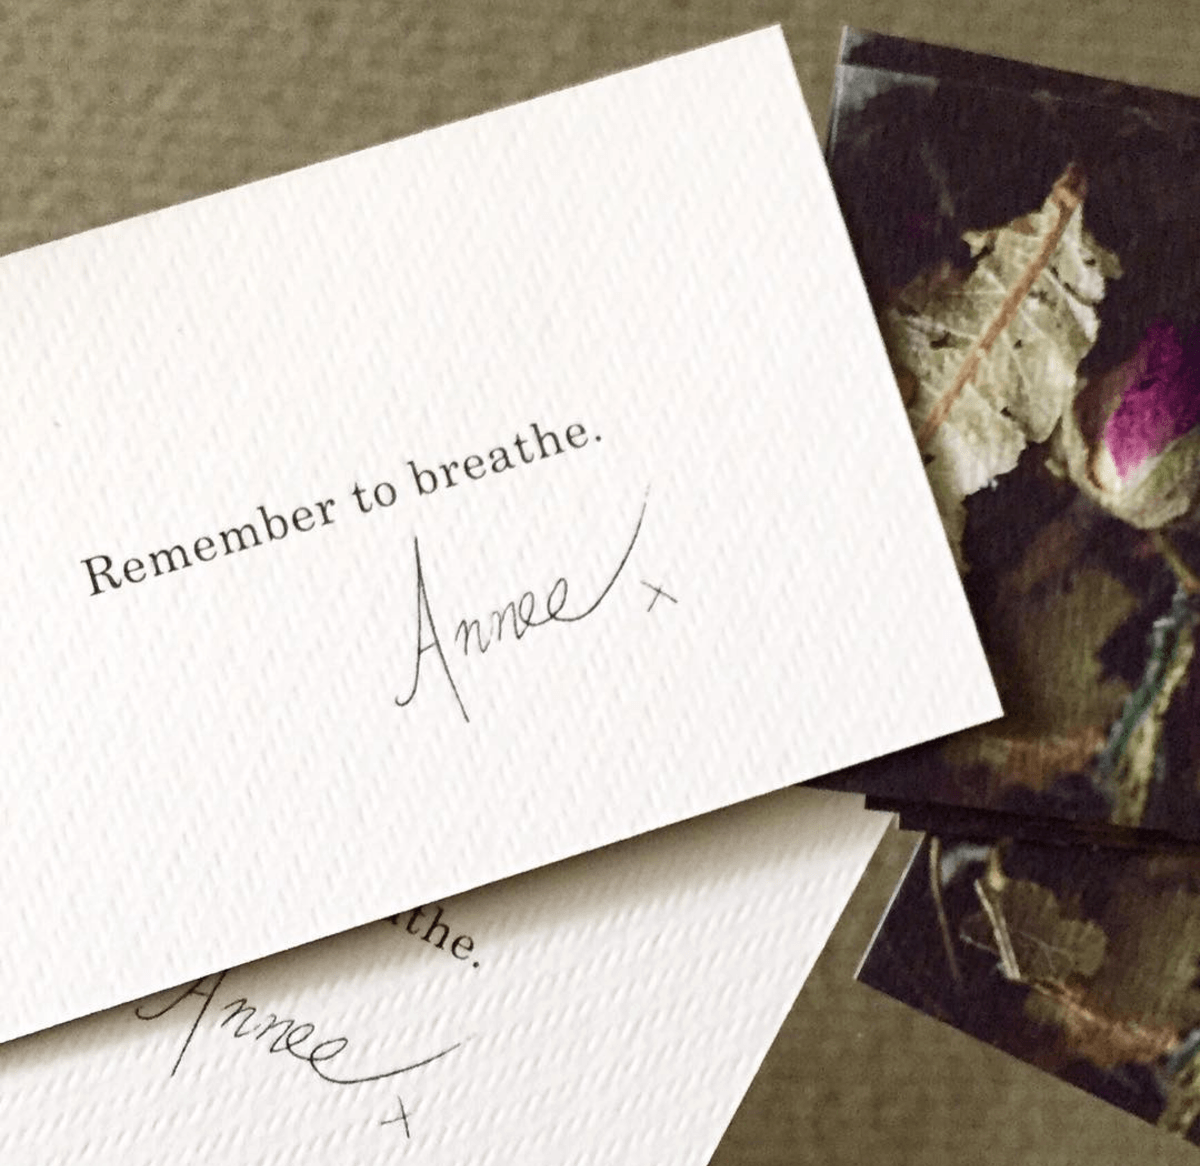 Remember to breathe.
Annee x
the.
Annee
x